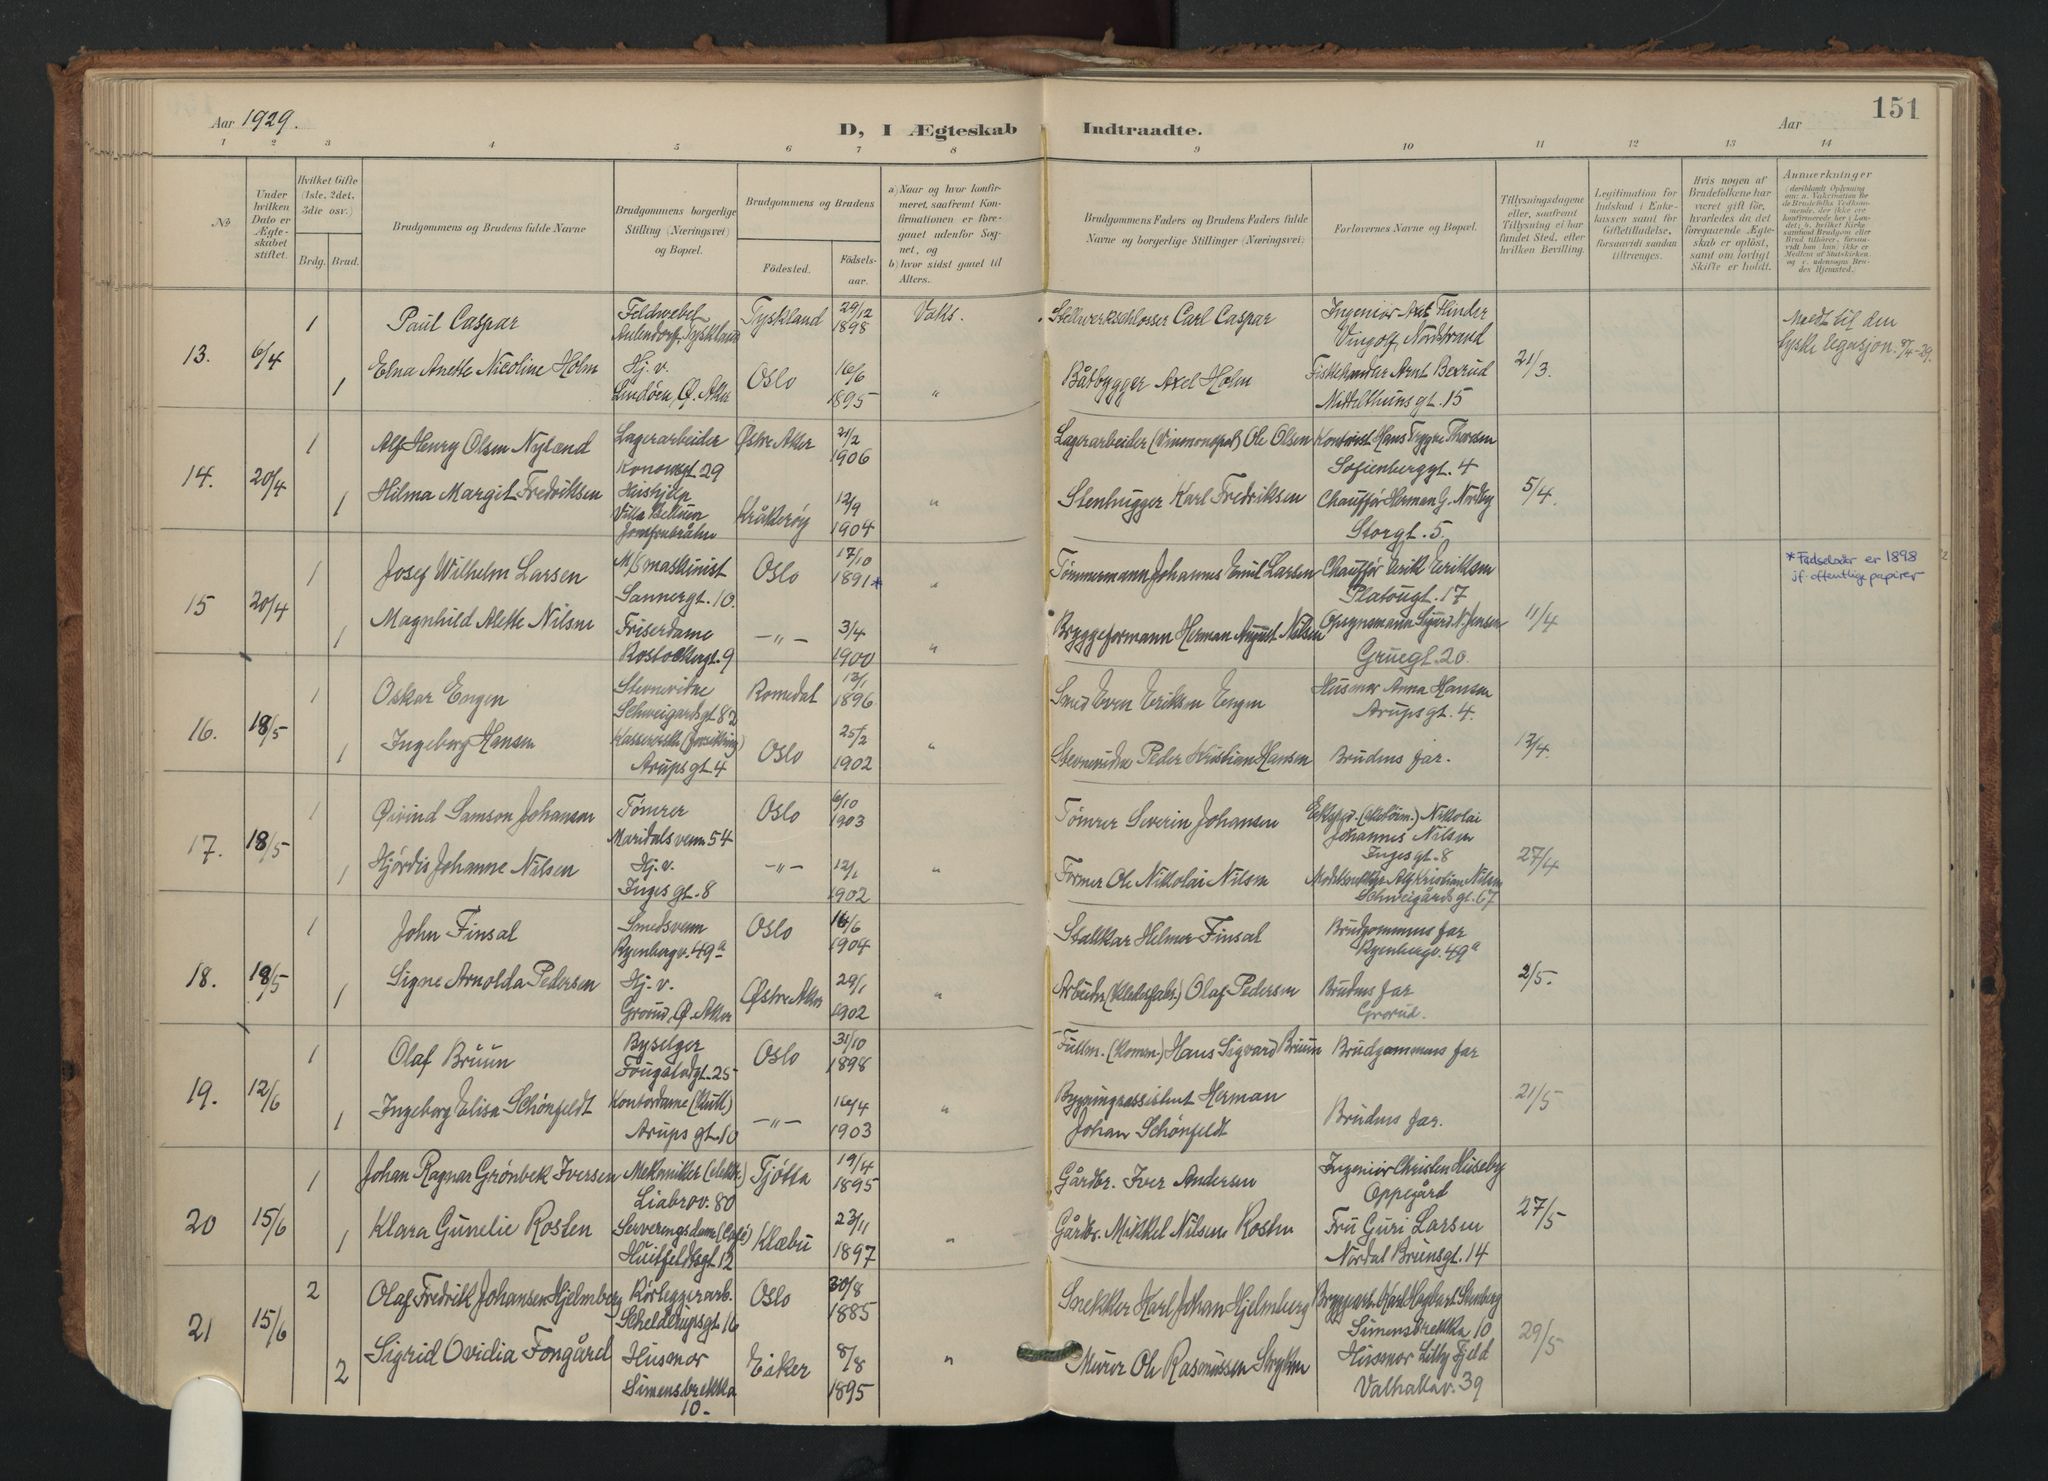 Aar 1929.
D, I Ægteskab Indtraadte.
Aar
151
1 2 3 4 5 6 7 8 9 10 11 12 13 14
No
Under hvilken Dato er Ægteskabet stiftet.
Hvilket Gifte (1ste, 2det, 3die osv.)
Brdg. Brud.
Brudgommens og Brudens fulde Navne
Brudgommens borgerlige Stilling (Næringsvei) og Bopæl.
Brudgommens og Brudens
Fødested. Fødselsaar.
a) Naar og hvor konfirmeret, saafremt Konfirmationen er foregaaet udenfor Sognet, og
b) hvor sidst gaaet til Alters.
Brudgommens Faders og Brudens Faders fulde Navne og borgerlige Stillinger (Næringsvei)
Forlovernes Navne og Bopæl.
Tillysningsdagene eller, saafremt Tillysning ei har fundet Sted, efter hvilken Bevilling.
Legitimation for Indskud i Enkekassen samt for Giftetilladelse, forsaavidt saadan tiltrænges.
Hvis nogen af Brudefolkene har været gift før, hvorledes da det foregaaende Ægteskab er opløst, samt om lovligt Skifte er holdt.
Anmerkninger
13. 6/4
1 Paul Caspar Feldwebel Aulendorf, Tyskland Tyskland 29/12 1898 Vaks. Stellwerkschlosser Carl Caspar Ingeniør Axel Flinder Vingolf, Nordstrand
1 Elna Anette Nicoline Holm Hj. v. Lindøen, Ø. Aker Oslo 16/6 1895 " Båtbygger Axel Holm Fiskehandler Arnt Bexrud Middelthunsgt. 15 21/3.
Meldt til den tyske legasjon. 9/4-29.
14. 20/4
1 Alf Henry Olsen Nyland Lagerarbeider Konowsgt 29 Østre Aker 21/2 1906 Lagerarbeider (Vinmonopol) Ole Olsen Kontorist Hans Trygve Thorsen Sofienberggt. 4
1 Hilma Margit Fredriksen Hushjelp Villa Bellum Kråkerøy 12/9 1904 " Stenhugger Karl Fredriksen Chauffør Herman G. Nordby Storgt. 5. 5/4.
15 20/4
1 Josef Wilhelm Larsen M/S maskinist Sannergt. 10. Oslo 17/10 1891* " Tømmermann Johannes Emil Larsen Chauffør Erik Eriksen Platougt. 17
* Fødselsår er 1898
jf. offentlige papirer
1 Magnhild Alette Nilsen Friserdame Rostockergt. 9 -"- 3/4 1900 " Bryggeformann Herman August Nilsen Opsynsmann Sigurd N. Jensen Gruegt. 20. 11/4
16. 18/5
1 Oskar Engen Stevnevidne Schweigardsgt 82 Romedal 13/1 1896 Smed Even Eriksen Engen Husmor Anna Hansen Arupsgt. 4.
1 Ingeborg Hansen Kassererske (forsikring) Arupsgt. 4 Oslo 25/2 1902 " Stevnevidne Peder Kristian Hansen Brudens far. 12/4.
17. 18/5
1 Øivind Samson Johansen Tømrer Maridalsveien 54 Oslo 6/10 1903 Tømrer Severin Johansen Nikolai Johannes Nilsen Inges gt. 8
1 Hjørdis Johanne Nilsen Hj. v. Inges gt. 8 -"- 12/1 1902 " Former Ole Nikolai Nilsen Alf Kristian Nilsen Schweigårdsgt. 67 27/4
18. 18/5
1 John Finsal Smedsvenn Ryenbergv. 49a Oslo 14/6 1904 Stallkar Helmer Finsal Brudgommens far Ryenbergv. 49a
1 Signe Arnolda Pedersen Hj. v. Grorud, Ø. Aker Østre Aker 29/1 1902 " Arbeider (Klædesfabr.) Olaf Pedersen Brudens far Grorud. 2/5.
19. 12/6
1 Olaf Bruun Byselger Fougstadgt. 25 Oslo 31/10 1898 Fullm. (Komm.) Hans Sigvard Bruun Brudgommens far
1 Ingeborg Elisa Schönfeldt Kontordame Arups gt. 10 -"- 16/4 1903 " Bygningsassistent Herman Johan Schönfeldt Brudens far. 21/5
20 15/6
1 Johan Ragnar Grønbek Iversen Mekaniker (elektr.) Liabrov. 80 Tjøtta 19/4 1895 Gårdbr. Iver Andersen Ingeniør Christen Huseby Oppegård
1 Klara Gunelie Rosten Serveringsdame (Café) Huitfeldtsgt 12 Klæbu 23/11 1897 " Gårdbr. Mikkel Nilsen Rosten Fru Guri Larsen Nordal Brunsgt. 14 27/5
21 15/6
2 Olaf Fredrik Johansen Hjelmberg Rørleggerarb. Schelderupsgt 16 Oslo 30/8 1885 Snekker Karl Johan Hjelmberg Karl Hagbart Stenberg Simensbrekka 10
2 Sigrid Ovidia Fongård Husmor Simensbrekka 10- Eiker 8/8 1895 " Murer Ole Rasmussen Husmor Lilly Fjeld Valhallav. 39 29/5